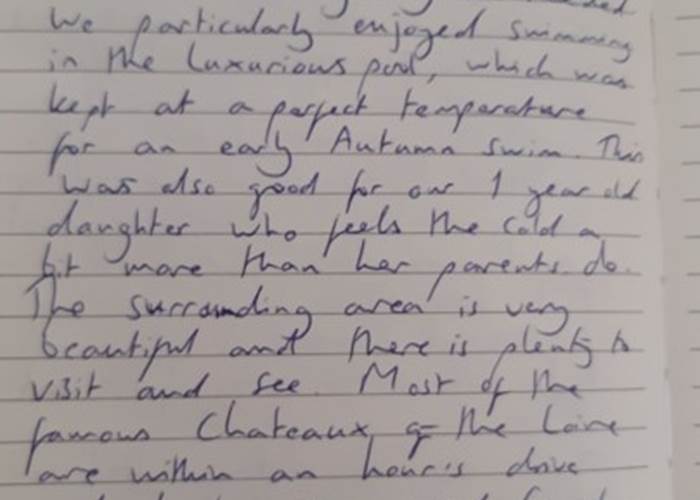 We particularly enjoyed swimming
in the luxurious pool, which was
kept at a perfect temperature
for an early Autumn swim. This
was also good for our 1 year old
daughter who feels the cold a
bit more than her parents do.
The surrounding area is very
beautiful and there is plenty to
visit and see. Most of the
famous Chateaux of the Loire
are within an hour's drive